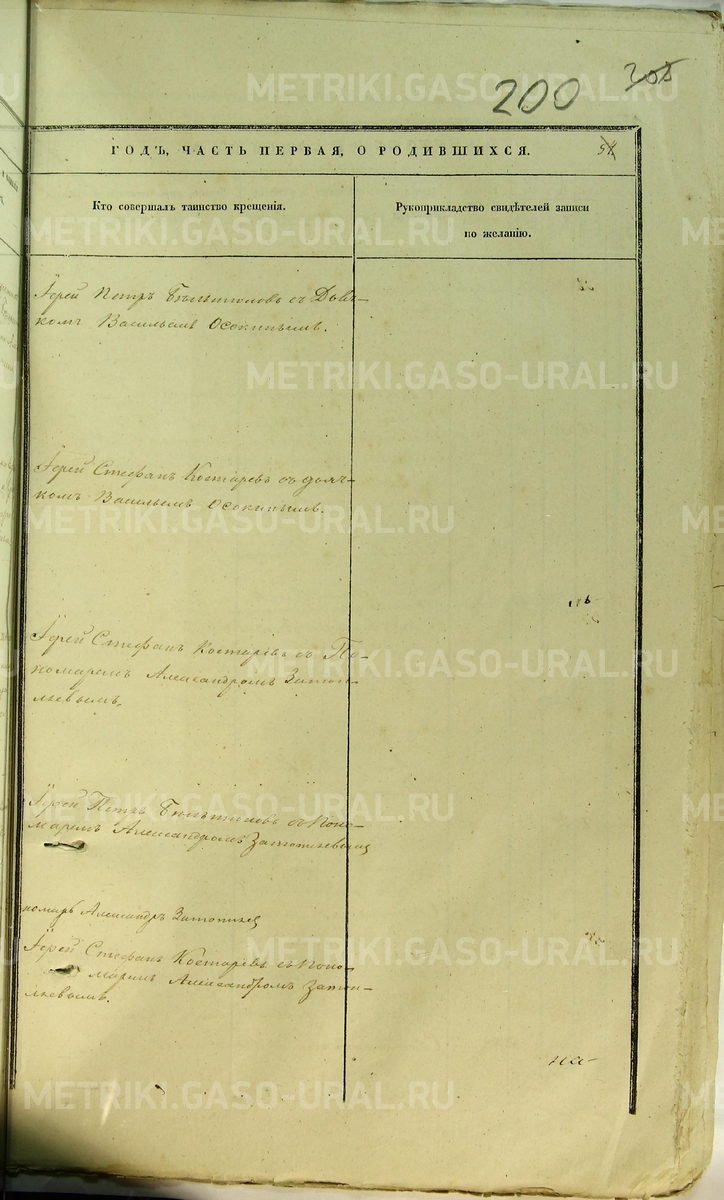 200
205
ГОДЪ, ЧАСТЬ ПЕРВАЯ, О РОДИВШИХСЯ.
54
Кто совершалъ таинство крещенія.
Рукоприкладство свидѣтелей записи
по желанію.
Іерей Петръ съ Дья-
комъ Васильемъ Осокинымъ.
Іерей Стефанъ Костаревъ съ дья-
комъ Васильемъ Осокинымъ.
Іерей Стефанъ Костаревъ съ По-
номаремъ Александромъ Затоп-
ляевымъ.
Іерей Петръ съ Поно-
маремъ Александромъ
номарь Александръ
Іерей Стефанъ Костаревъ съ Поно-
маремъ Александромъ Затоп-
ляевымъ.
на-
METRIKI.GASO-URAL.RU